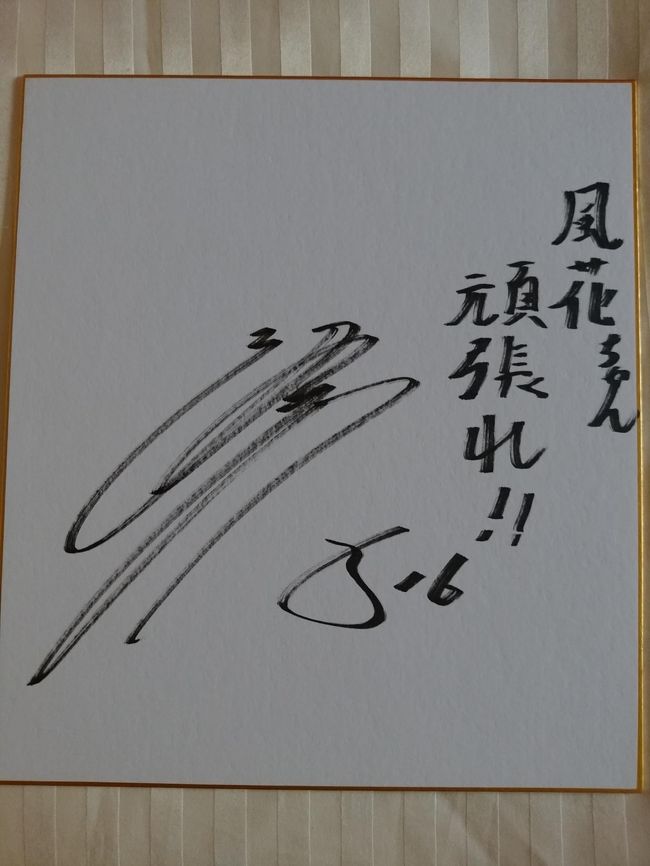 風花ちゃん
頑張れ!!
5-6